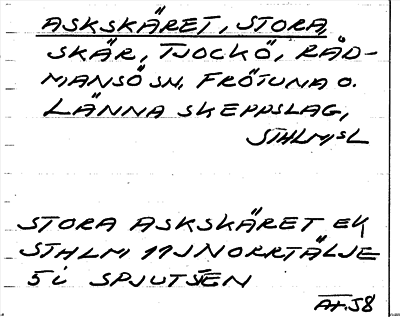 ASKSKÄRET, STORA,
SKÄR, TJOCKÖ, RÅD-
MANSÖ SN, FRÖTUNA O.
LÄNNA SKEPPSLAG,
STHLMSL
STORA ASKSKÄRET EK
STHLM 11J NORRTÄLJE
5i SPJUTSTEN
AT.58